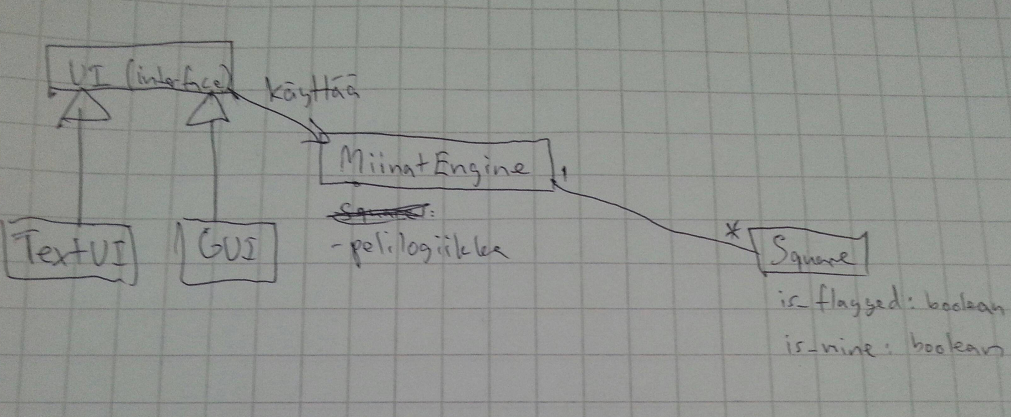 UI (interface)
käyttää
Miinat Engine
1
-pelilogiikka
*
TextUI
GUI
Square
is_flagged: boolean
is_mine: boolean